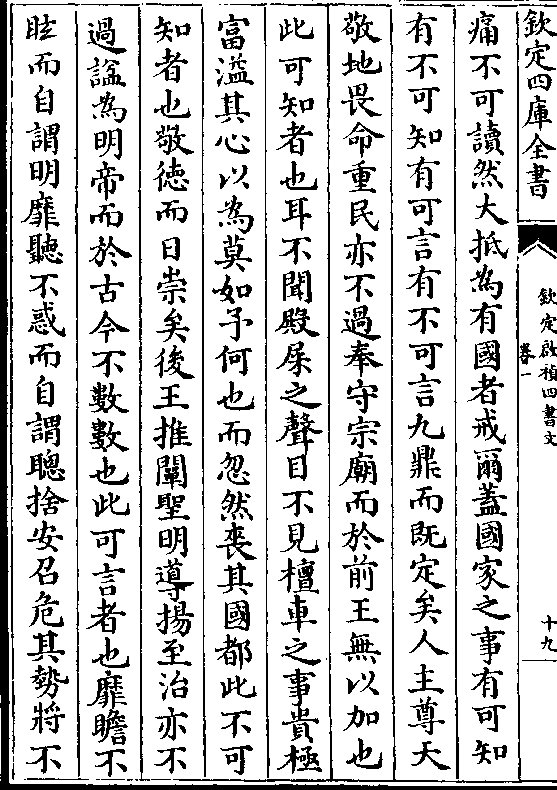 欽定四庫全書
欽定啟禎四書文
卷一
十九
痛不可讀然大抵為有國者戒爾蓋國家之事有可知
有不可知有可言有不可言九鼎而既定矣人主尊天
敬地畏命重民亦不過奉守宗廟而於前王無以加也
此可知者也耳不聞殿屎之聲目不見檀車之事貴極
富溢其心以為莫如予何也而忽然喪其國都此不可
知者也敬徳而日崇矣後王推闡聖明導揚至治亦不
過諡為明帝而於古今不數數也此可言者也靡瞻不
眩而自謂明靡聽不惑而自謂聰捨安召危其勢將不